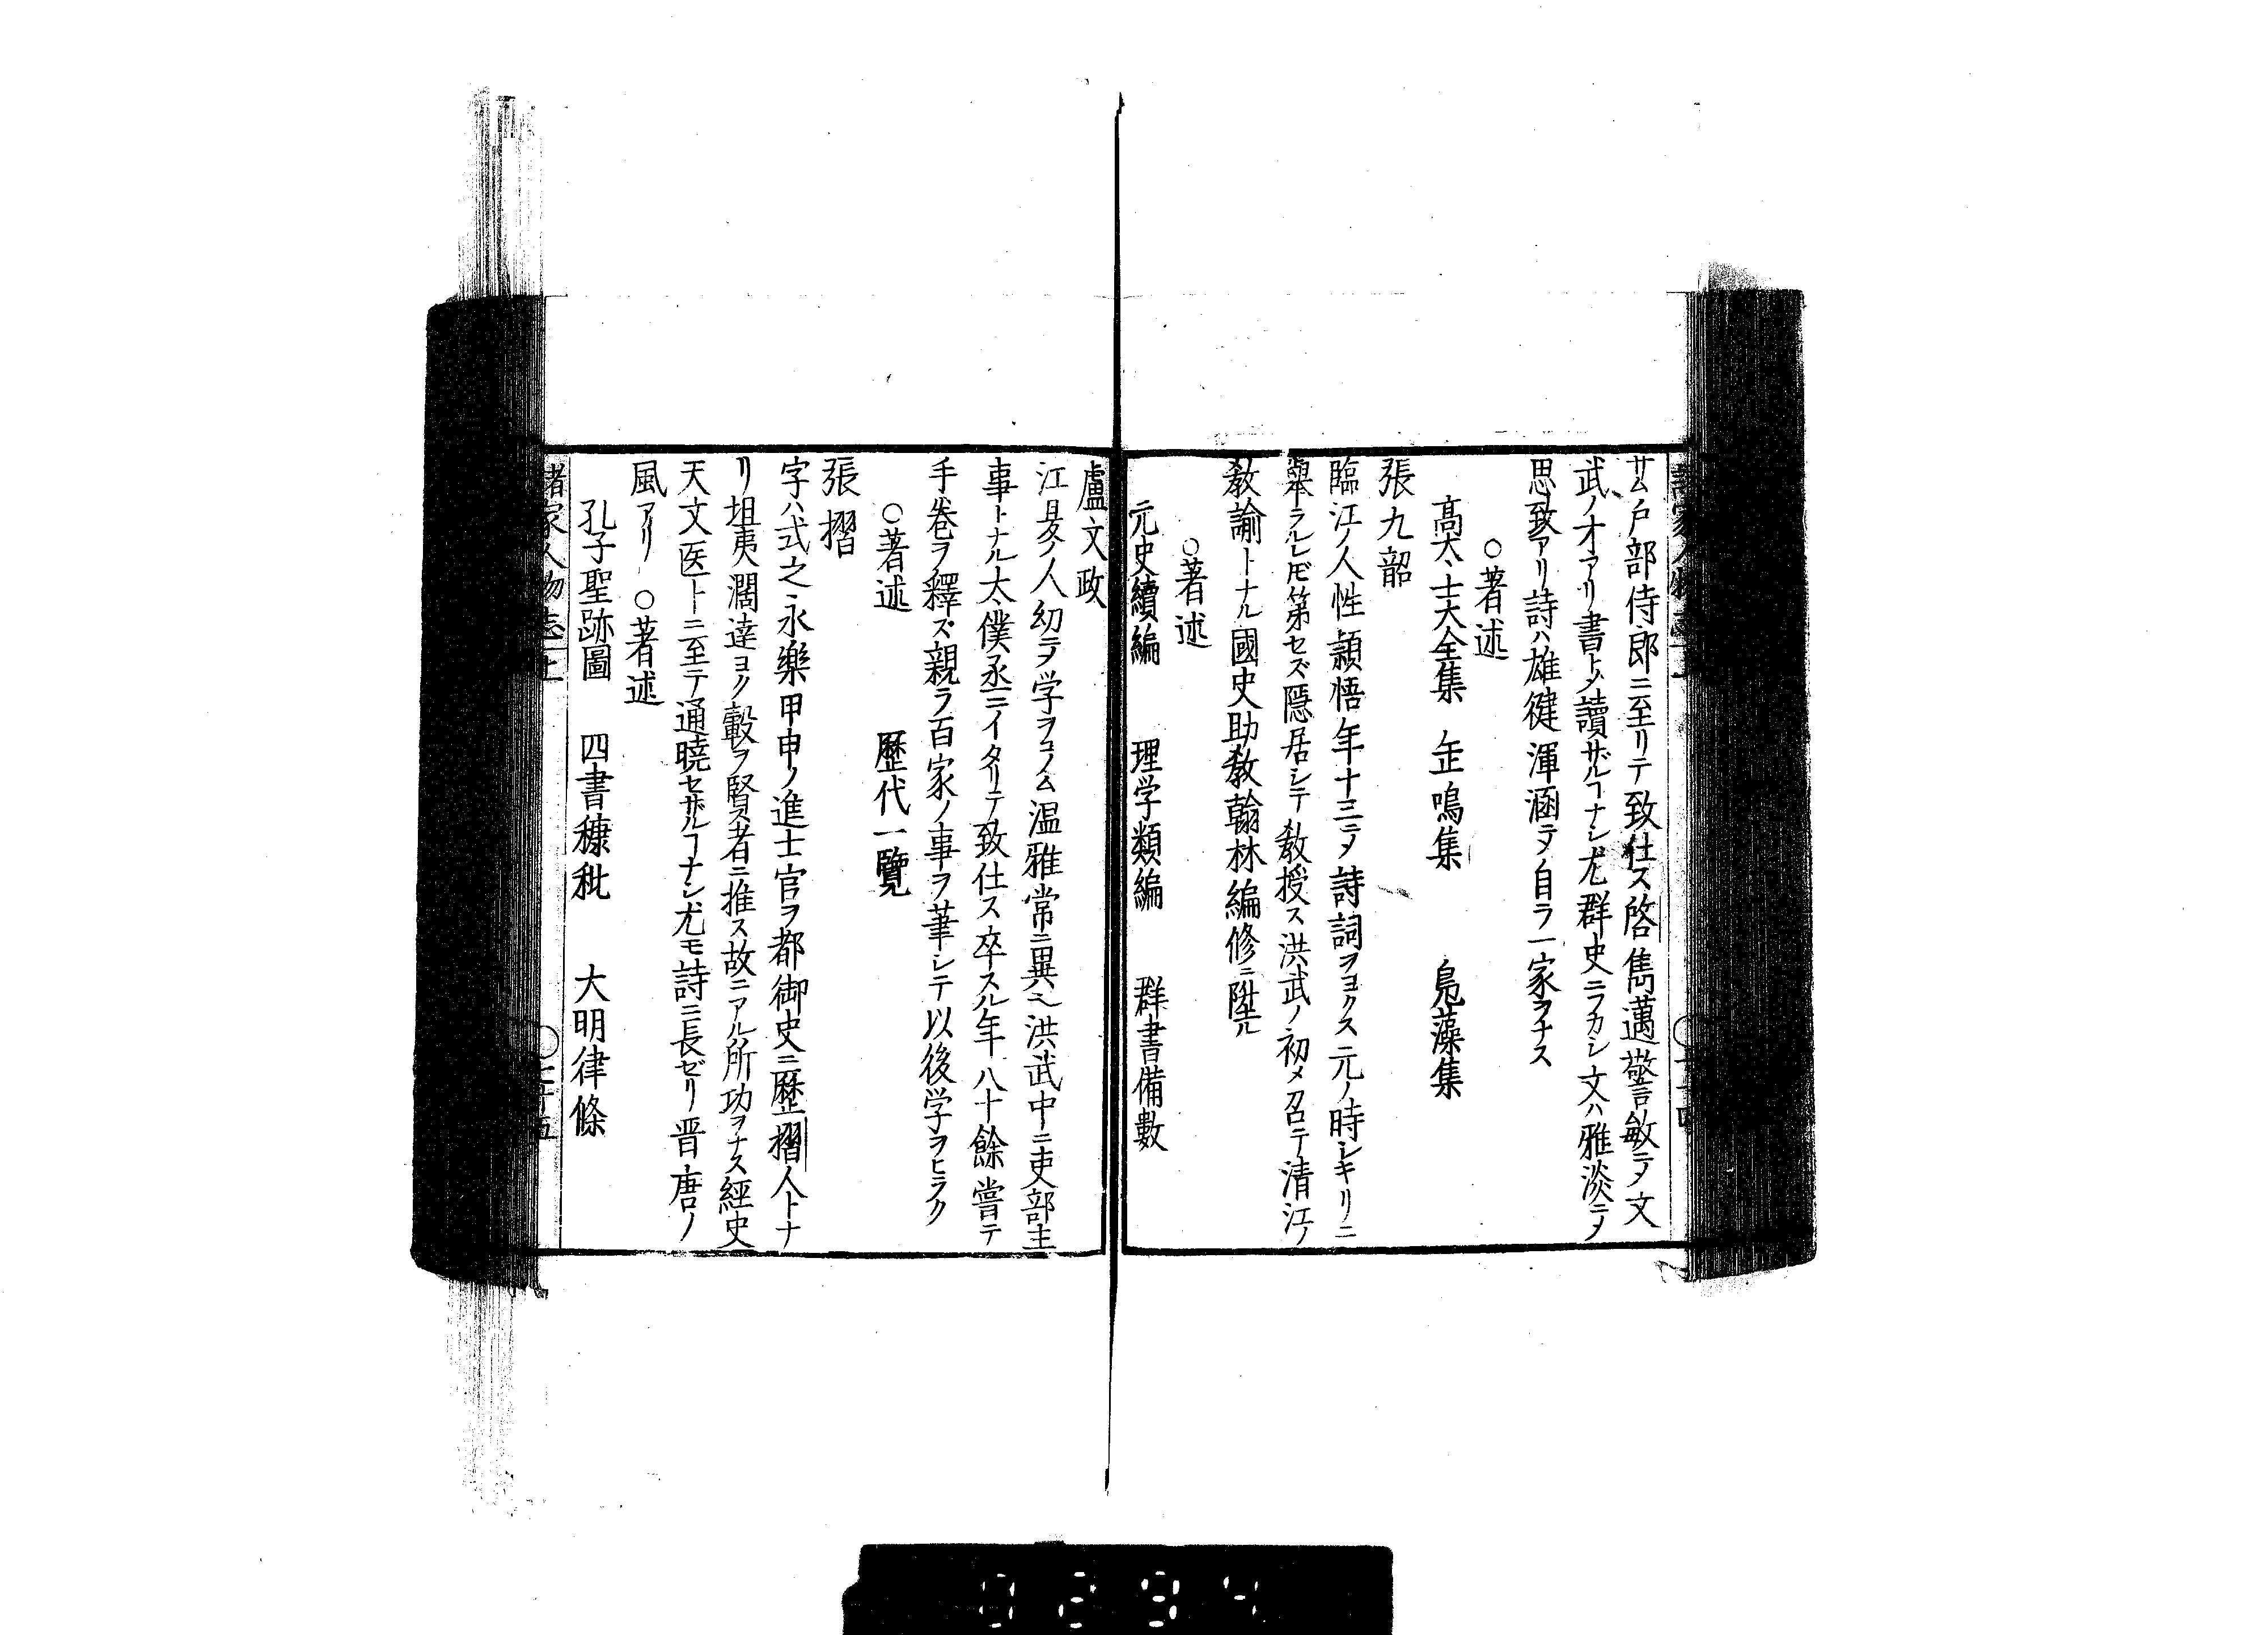 サム戸部侍郎ニ至リテ致仕ス啓雋邁警敏ニメ文
武ノ才アリ書トメ讀ザルヿナシ尤群史ニフカシ文ハ雅淡ニメ
思致アリ詩ハ雄健渾涵ニテ自ラ一家ヲナス
○著述
高太士大全集 缶鳴集 鳧藻集
張九韶
臨江ノ人性頴悟年十三ニメ詩詞ヲヨクス元ノ時シキリニ
舉ラルレ𪜈第セズ隠居シテ教授ス洪武ノ初メ召テ清江ノ
教諭トナル國史助教翰林編修ニ陞ル
○著述
元史續編 理学類編 群書備數
盧文政
江夏ノ人幼ニテ学ヲコノム温雅常ニ異ヘ洪武中ニ吏部主
事トナル太僕丞ニイタリテ致仕ス卒スル年八十餘嘗テ
手巻ヲ釋ズ親ラ百家ノ事ヲ筆シテ以後学ヲヒラク
○著述
歴代一覽
張摺
字ハ式之永樂甲申ノ進士官ヲ都御史ニ歴摺人トナ
リ坦夷濶達ヨク轂ヲ賢者ニ推ス故ニアル所功ヲナス經史
天文医卜ニ至テ通暁セザルヿナシ尤モ詩ニ長ゼリ晋唐ノ
風アリ ○著述
孔子聖跡圖 四書糠粃 大明律條
諸家人物志上
○七十五